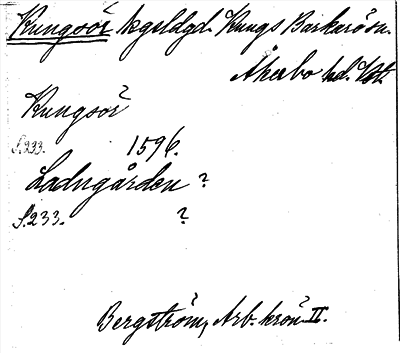 Kungsör kgsldgd. Kungs Barkarö sn.
Åkerbo hd. Vstm.
Kungsör
S. 233. 1596.
Ladugården ?
S. 233. ?
Bergström, Arb. krön. II.